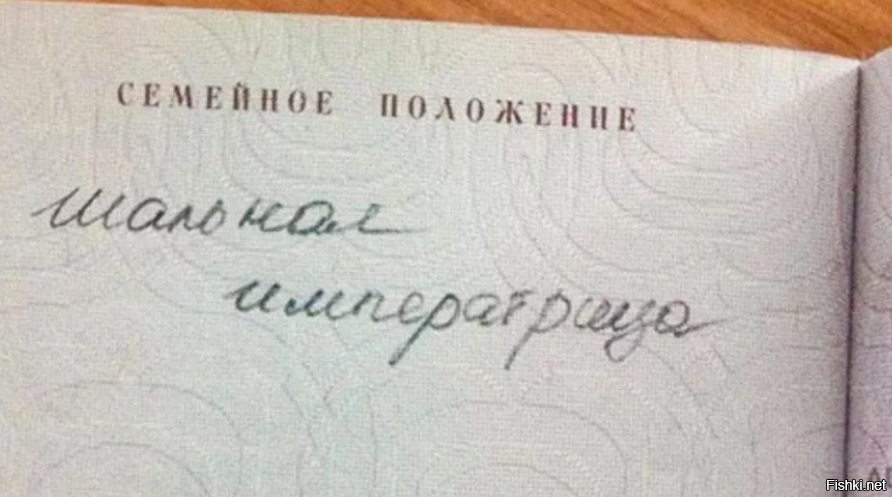 СЕМЕЙНОЕ ПОЛОЖЕНИЕ
шальная
императрица
Fishki.net